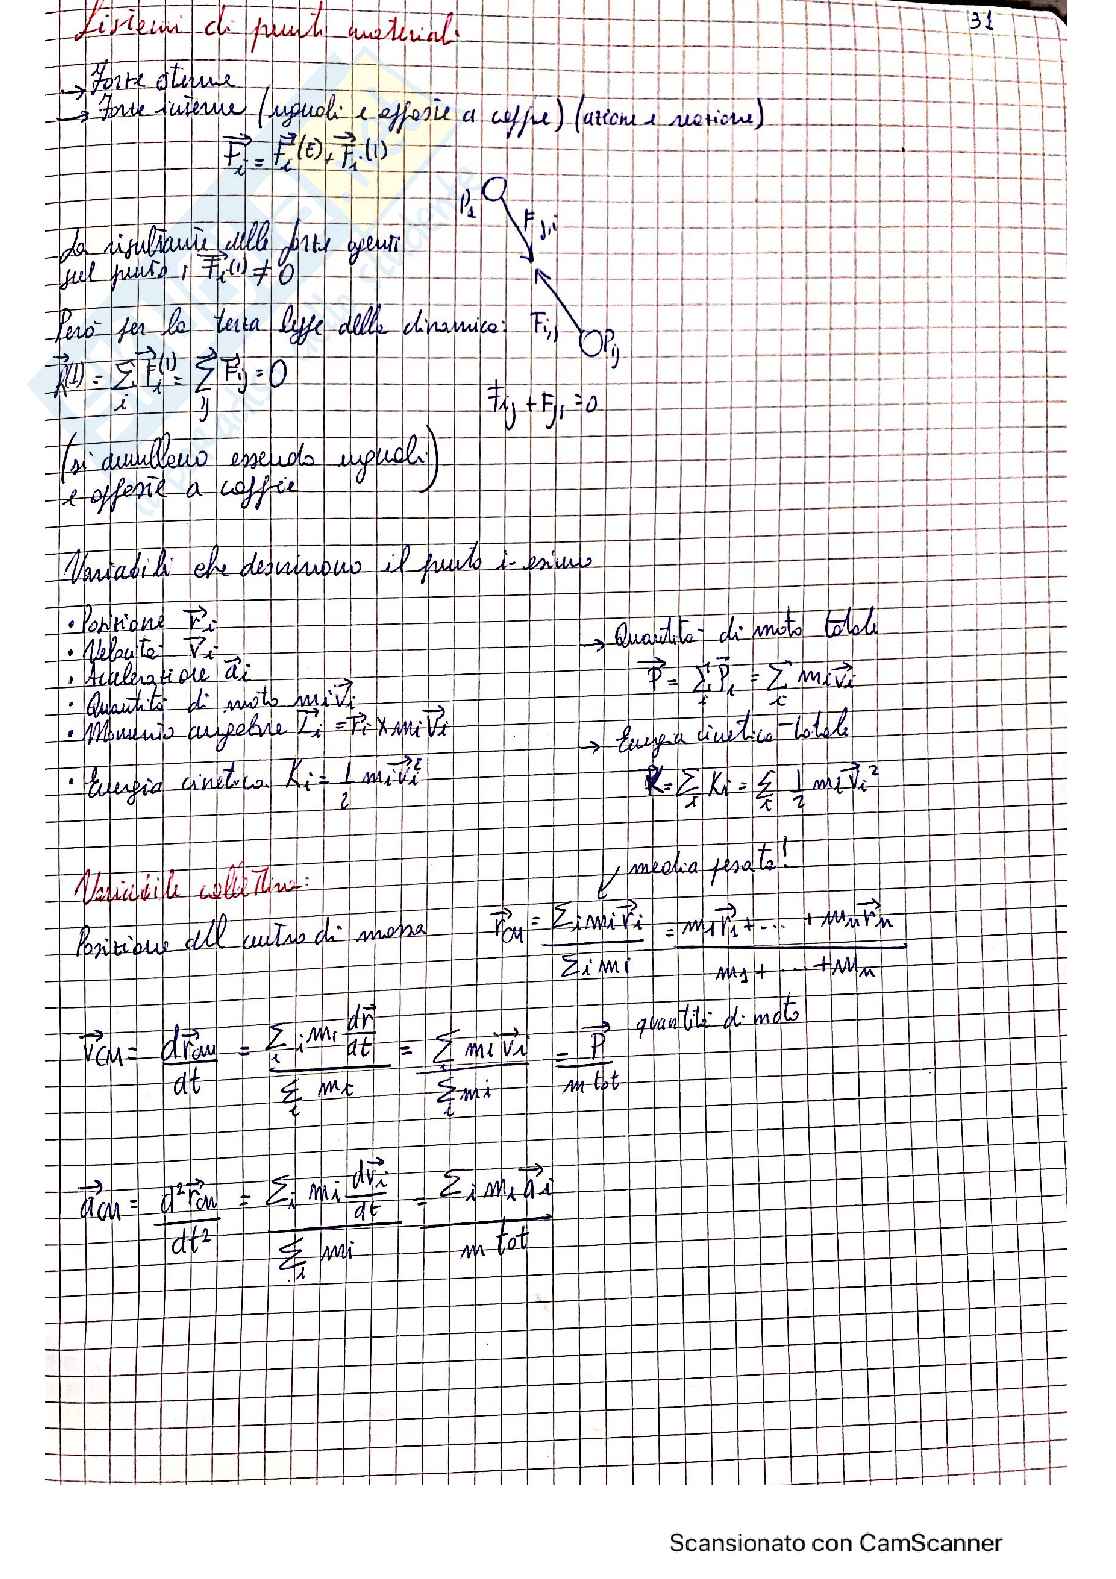 31
Sistemi di punti materiali
→ Forze esterne
→ Forze interne (uguali e opposte a coppie) (azione e reazione)
F⃗i = F⃗i(E) + F⃗i(I)
P1
Fj,i
La risultante delle forze agenti
sul punto i F⃗i(I) ≠ 0
Però per la terza legge della dinamica:
Fij
Pj
R⃗(I) = ∑i F⃗i(I) = ∑ij F⃗ij = 0
Fij + Fji = 0
(si annullano essendo uguali
e opposte a coppie)
Variabili che descrivono il punto i-esimo
• Posizione r⃗i
• Velocità v⃗i
• Accelerazione a⃗i
• Quantità di moto mi v⃗i
• Momento angolare L⃗i = r⃗i × mi v⃗i
• Energia cinetica Ki = 1/2 mi v⃗i²
→ Quantità di moto totale
P⃗ = ∑i P⃗i = ∑i mi v⃗i
→ Energia cinetica totale
K = ∑i Ki = ∑i 1/2 mi v⃗i²
media pesata!
Variabile collettiva:
Posizione del centro di massa r⃗CM = ∑i mi r⃗i / ∑i mi = m1 r⃗1 + ... + mn r⃗n / m1 + ... + mn
v⃗CM = dr⃗CM/dt = ∑i mi dr⃗/dt / ∑i mi = ∑i mi v⃗i / ∑i mi = P⃗ / m tot quantità di moto
a⃗CM = d² r⃗CM / dt² = ∑i mi dv⃗i/dt / ∑i mi = ∑i mi a⃗i / m tot
Scansionato con CamScanner